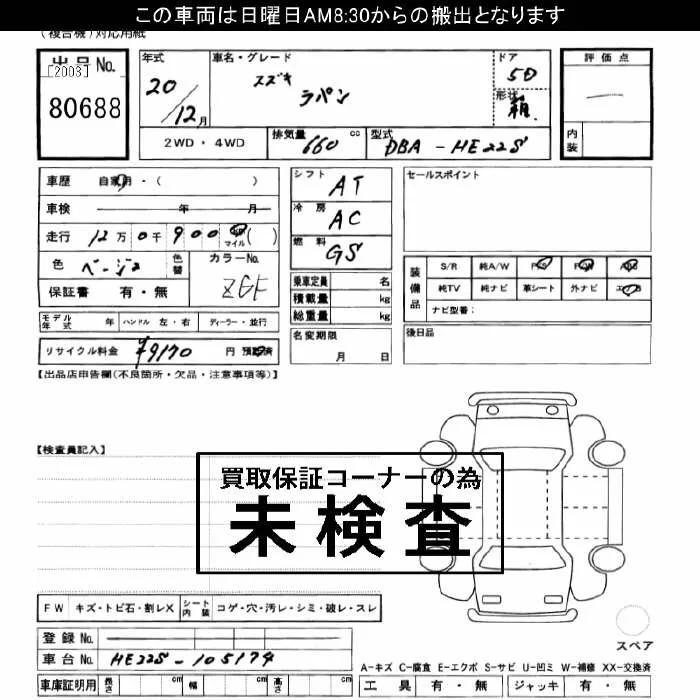 この車両は日曜日AM8:30からの搬出となります
(複合機)対応用紙
出品No.
[2003]
80688
年式 車名・グレード ドア 評価点
20/12月 スズキ ラパン 5D
形状 箱 —
2WD・4WD 排気量 660 cc 型式 DBA-HE22S 内装
車歴 自家用・( )
車検 年 月
走行 12万0千900 km マイル ( )
色 ベージュ 色替 カラーNo. ZGF
保証書 有・無
シフト AT
冷房 AC
燃料 GS
乗車定員 名
積載量 kg
総重量 kg
名変期限
月 日
セールスポイント
装備品
S/R 純A/W P/S P/W ABS
純TV 純ナビ 革シート 外ナビ エアB
ナビ型番:
後日品
モデル年式 年 ハンドル 左・右 ディーラー・並行
リサイクル料金 ¥9170 円 預託済
【出品店申告欄(不良箇所・欠品・注意事項等)】
【検査員記入】
買取保証コーナーの為
未検査
FW キズ・トビ石・割レX シート内装 コゲ・穴・汚レ・シミ・破レ・スレ
登録No.
車台No. HE22S-105174
車庫証明用 長さ cm 幅 cm 高さ cm
スペア
A-キズ C-腐食 E-エクボ S-サビ U-凹ミ W-補修 XX-交換済
工具 有・無 ジャッキ 有・無